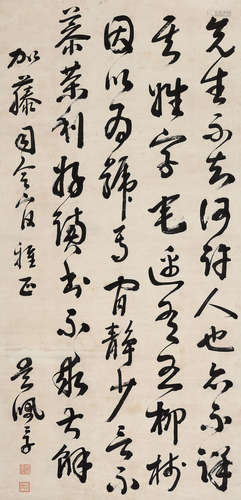 先生不知何許人也亦不詳
其姓字宅邊有五柳樹
因以為號焉閒靜少言不
慕榮利好讀書不求甚解
加藤司令官雅正
吳佩孚